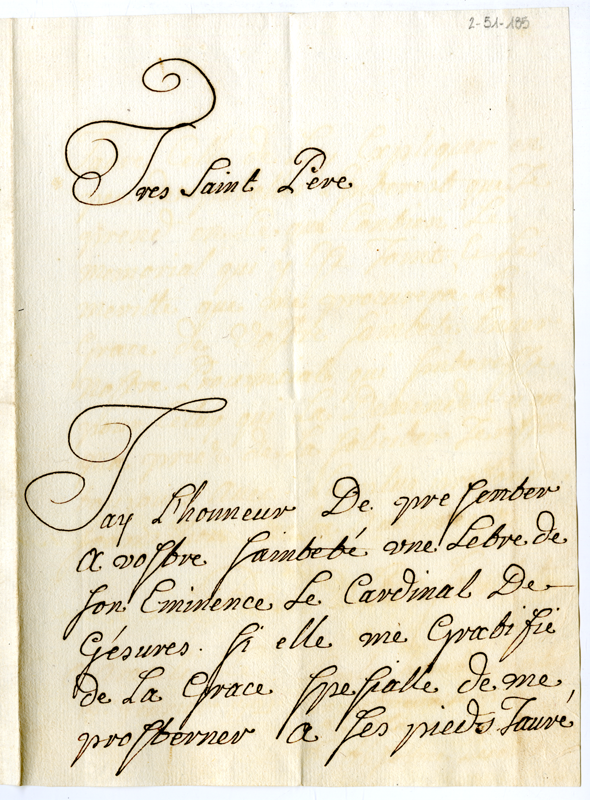 2-51-185
Tres Saint Pere
Jay L'honneur De presenter
a vostre sainteté une Letre de
son Eminence Le Cardinal De
Gésures. si elle me Gratifie
de La Grace spesialle de me
prosterner a ses pieds Jauré